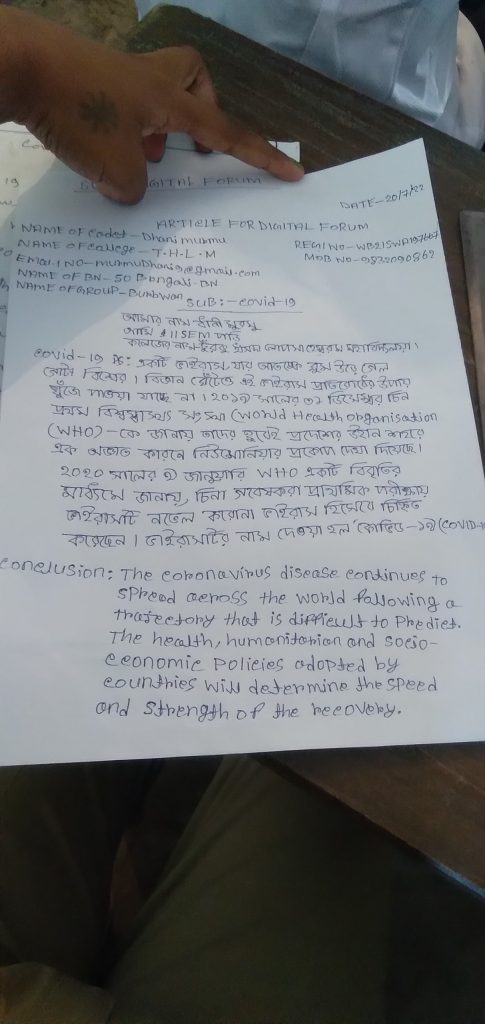 DIGITAL FORUM
DATE-20/7/22
ARTICLE FOR DIGITAL FORUM
NAME OF Cadet - Dhani murmu
REGI NO-WB21SWA197667
NAME OF College - T.H.L.M
MOB NO-9832090862
Email NO-murmuDhani9@gmail.com
NAME OF BN-50 Bengali-BN
NAME OF GROUP-Burdwan
SUB:-covid-19
আমার নাম-ধানী মুরমু
আমি SEM পড়ি
কলেজের নাম-
covid-19 is: একটি ভাইরাস যার আতঙ্কে ঘুম উড়ে গেল
গোটা বিশ্বের। বিজ্ঞান এই ভাইরাস প্রতিরোধের উপায়
খুঁজে পাওয়া যাচ্ছে না। ২০১৯ সালের ৩১ ডিসেম্বর চিন
প্রথম বিশ্বস্বাস্থ্য সংস্থা (World Health Organisation
(WHO)-কে জানায় তাদের হুবেই প্রদেশের উহান শহরে
এক অজ্ঞাত কারনে নিউমোনিয়ার প্রকোপ দেখা দিয়েছে।
2020 সালের 9 জানুয়ারি WHO একটি বিবৃতির
মাধ্যমে জানায়, চিনা গবেষকরা প্রাথমিক পরীক্ষায়
ভাইরাসটি নভেল করোনা ভাইরাস হিসেবে চিহ্নিত
করেছেন। ভাইরাসটির নাম দেওয়া হল কোভিড-১৯ (COVID-1
conclusion: The coronavirus disease continues to
spread across the world following a
trajectory that is difficult to Predict.
The health, humanitarian and socio-
economic Policies adopted by
countries will determine the speed
and strength of the recovery.